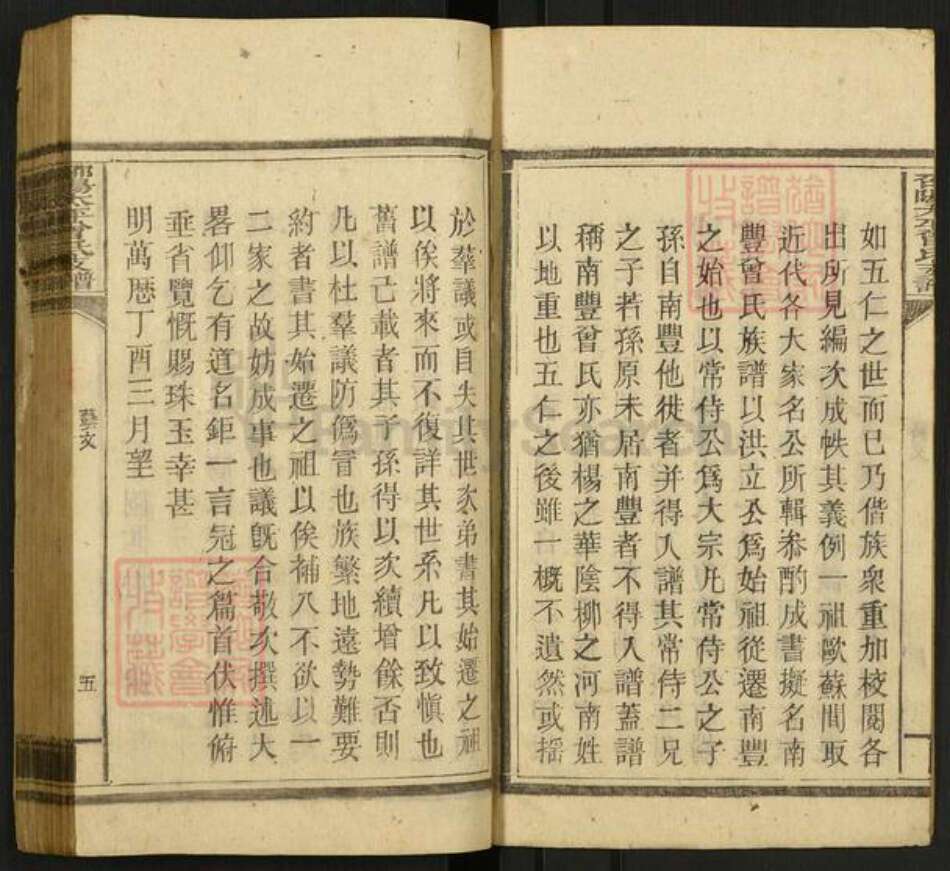 如五仁之世而已乃偕族衆重加校閱各
出所見編次成帙其義例一祖歐蘇間取
近代各大家名公所輯叅酌成書擬名南
豐曾氏族譜以洪立公爲始祖從遷南豐
之始也以常侍公爲大宗凡常侍公之子
孫自南豐他徙者并得入譜其常侍二兄
之子若孫原未居南豐者不得入譜蓋譜
稱南豐曾氏亦猶楊之華陰柳之河南姓
以地重也五仁之後雖一概不遺然或搖
於羣議或自失其世次弟書其始遷之祖
以俟將來而不復詳其世系凡以致慎也
舊譜已載者其子孫得以次續增餘否則
凡以杜羣議防僞冒也族繁地遠勢難要
約者書其始遷之祖以俟補入不欲以一
二家之故妨成事也議既合敬次撰述大
畧仰乞有道名鉅一言冠之篇首伏惟俯
垂省覽慨賜珠玉幸甚
明萬歷丁酉三月望
邵陽太平曾氏支譜
藝文
五